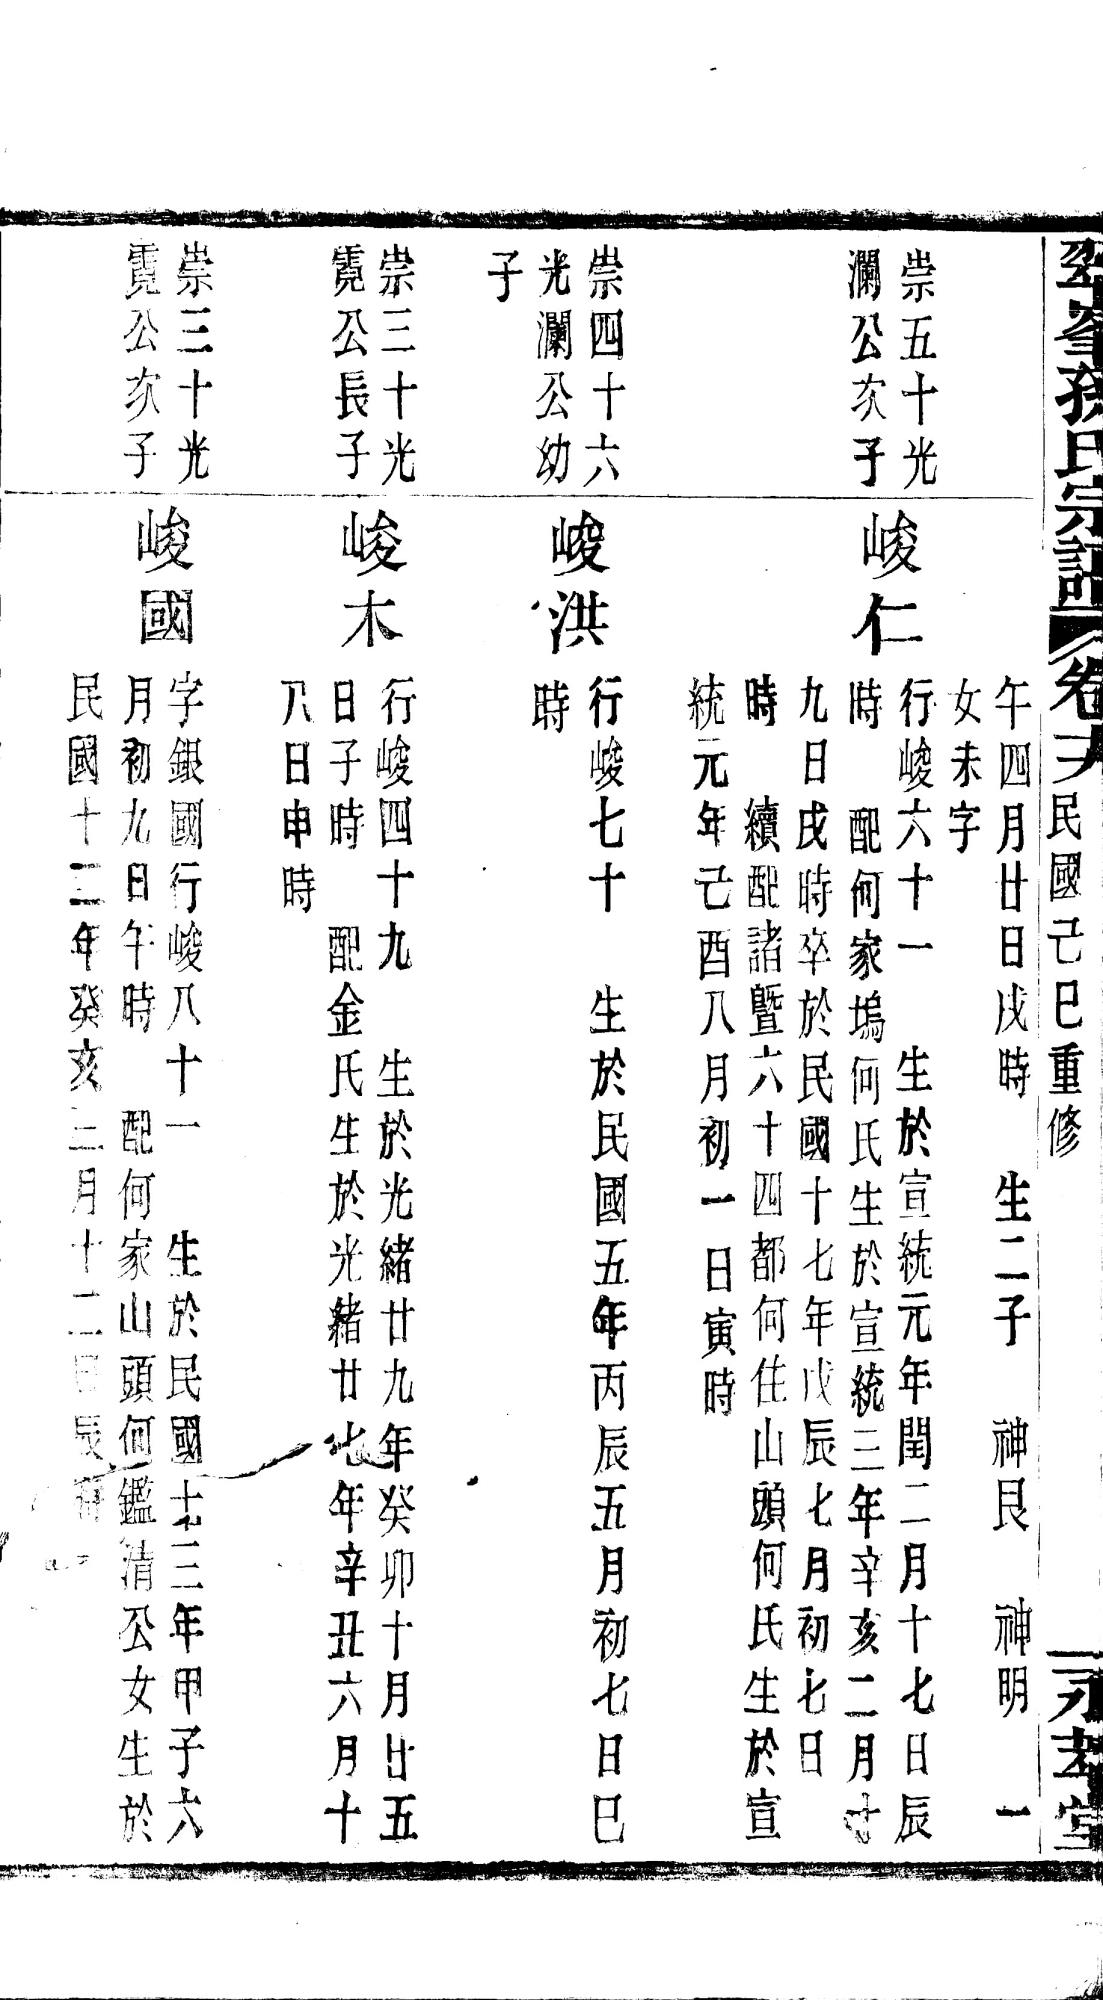 翠峯孫氏宗譜 卷 民國己巳重修 永孝堂
午四月廿日戌時 生二子 神艮 神明 一
女未字
崇五十光
瀾公次子
峻仁
行峻六十一 生於宣統元年閏二月十七日辰
時 配何家塢何氏生於宣統三年辛亥二月廿
九日戌時卒於民國十七年戊辰七月初七日
時 續配諸暨六十四都何住山頭何氏生於宣
統元年己酉八月初一日寅時
崇四十六
光瀾公幼
子
峻洪
行峻七十 生於民國五年丙辰五月初七日巳
時
崇三十光
霓公長子
峻木
行峻四十九 生於光緒廿九年癸卯十月廿五
日子時 配金氏生於光緒廿七年辛丑六月十
八日申時
崇三十光
霓公次子
峻國
字銀國行峻八十一 生於民國十三年甲子六
月初九日午時 配何家山頭何鑑清公女生於
民國十二年癸亥三月十二日辰時